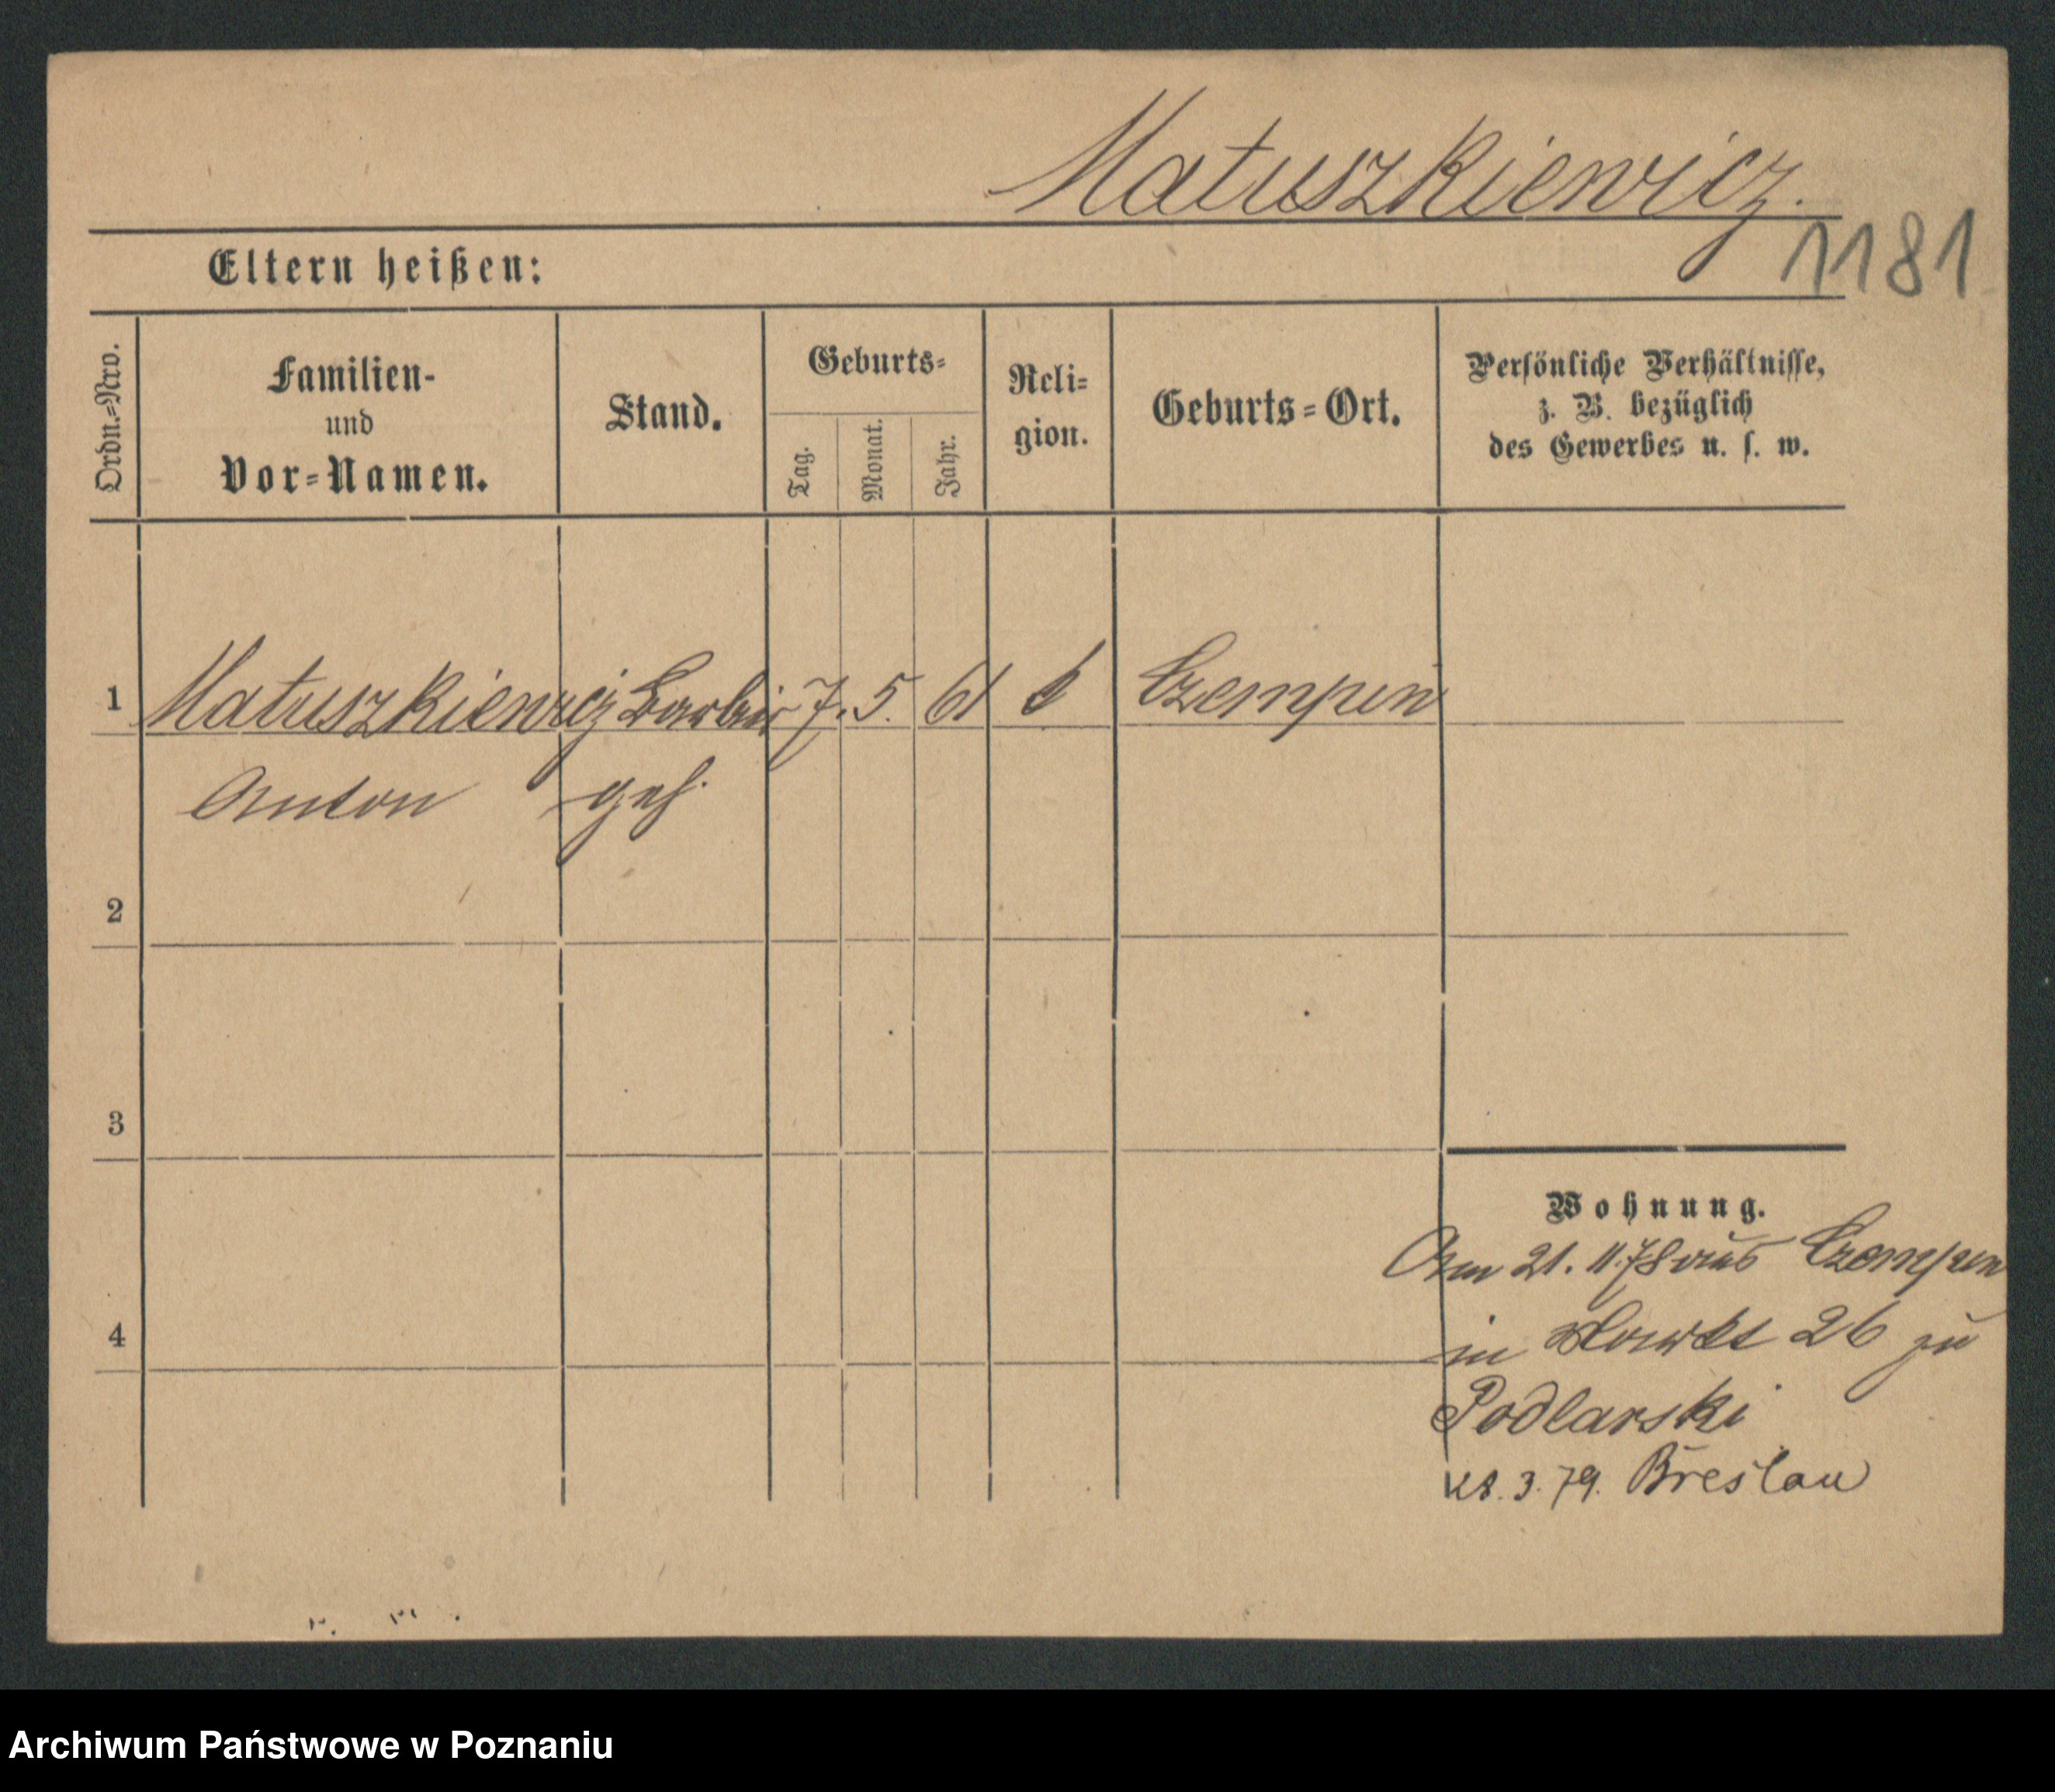 Matuszkiewicz.
1181
Eltern heißen:
Ordn.=Nro.
Familien-
und
Vor=Namen.
Stand.
Geburts=
Tag.
Monat.
Jahr.
Reli=
gion.
Geburts=Ort.
Persönliche Verhältnisse,
z. B. bezüglich
des Gewerbes u. s. w.
1 Matuszkiewicz Barbier 7. 5. 61 k Czempin
Anton geh.
2
3
4
Wohnung.
Am 21. 11. 78 aus Czempin
in Markt 26 zu
Podlarski
3. 79. Breslau
Archiwum Państwowe w Poznaniu